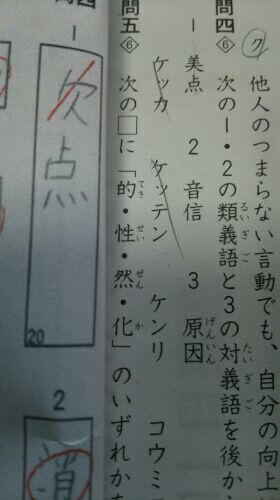 ク 他人のつまらない言動でも、自分の向上
問四 6 次の1・2の類義語と3の対義語を後か
1 美点 2 音信 3 原因
ケッカ ケッテン ケンリ コウミ
問五 6 次の□に「的・性・然・化」のいずれかを
1
欠点
20
2
消